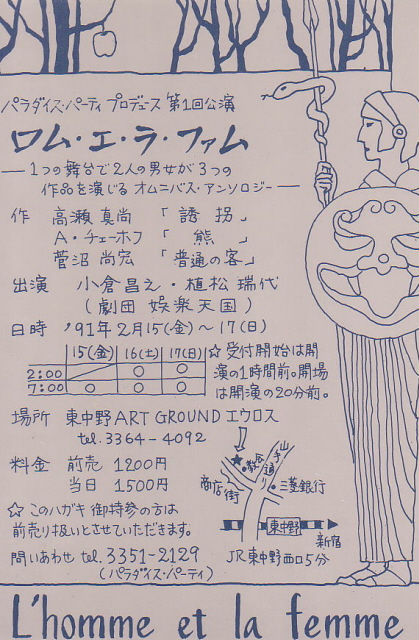 パラダイス・パーティ プロデュース 第1回公演
ロム・エ・ラ・ファム
―1つの舞台で2人の男女が3つの
作品を演じる オムニバス・アンソロジー―
作 高瀬 真尚 「誘拐」
A・チェーホフ 「熊」
菅沼 尚宏 「普通の客」
出演 小倉 昌之・植松 瑞代
(劇団 娯楽天国)
日時 '91年2月15(金)～17(日)
15(金) 16(土) 17(日)
2:00 ○ ○
7:00 ○ ○ ○
☆ 受付開始は開
演の1時間前。開場
は開演の20分前。
場所 東中野 ART GROUND エウロス
tel. 3364-4092
料金 前売 1200円
当日 1500円
☆ このハガキ御持参の方は
前売り扱いとさせていただきます。
問いあわせ tel. 3351-2129
(パラダイス・パーティ)
山手通り
教会
商店街
三菱銀行
東中野
新宿
JR東中野西口5分
L'homme et la femme